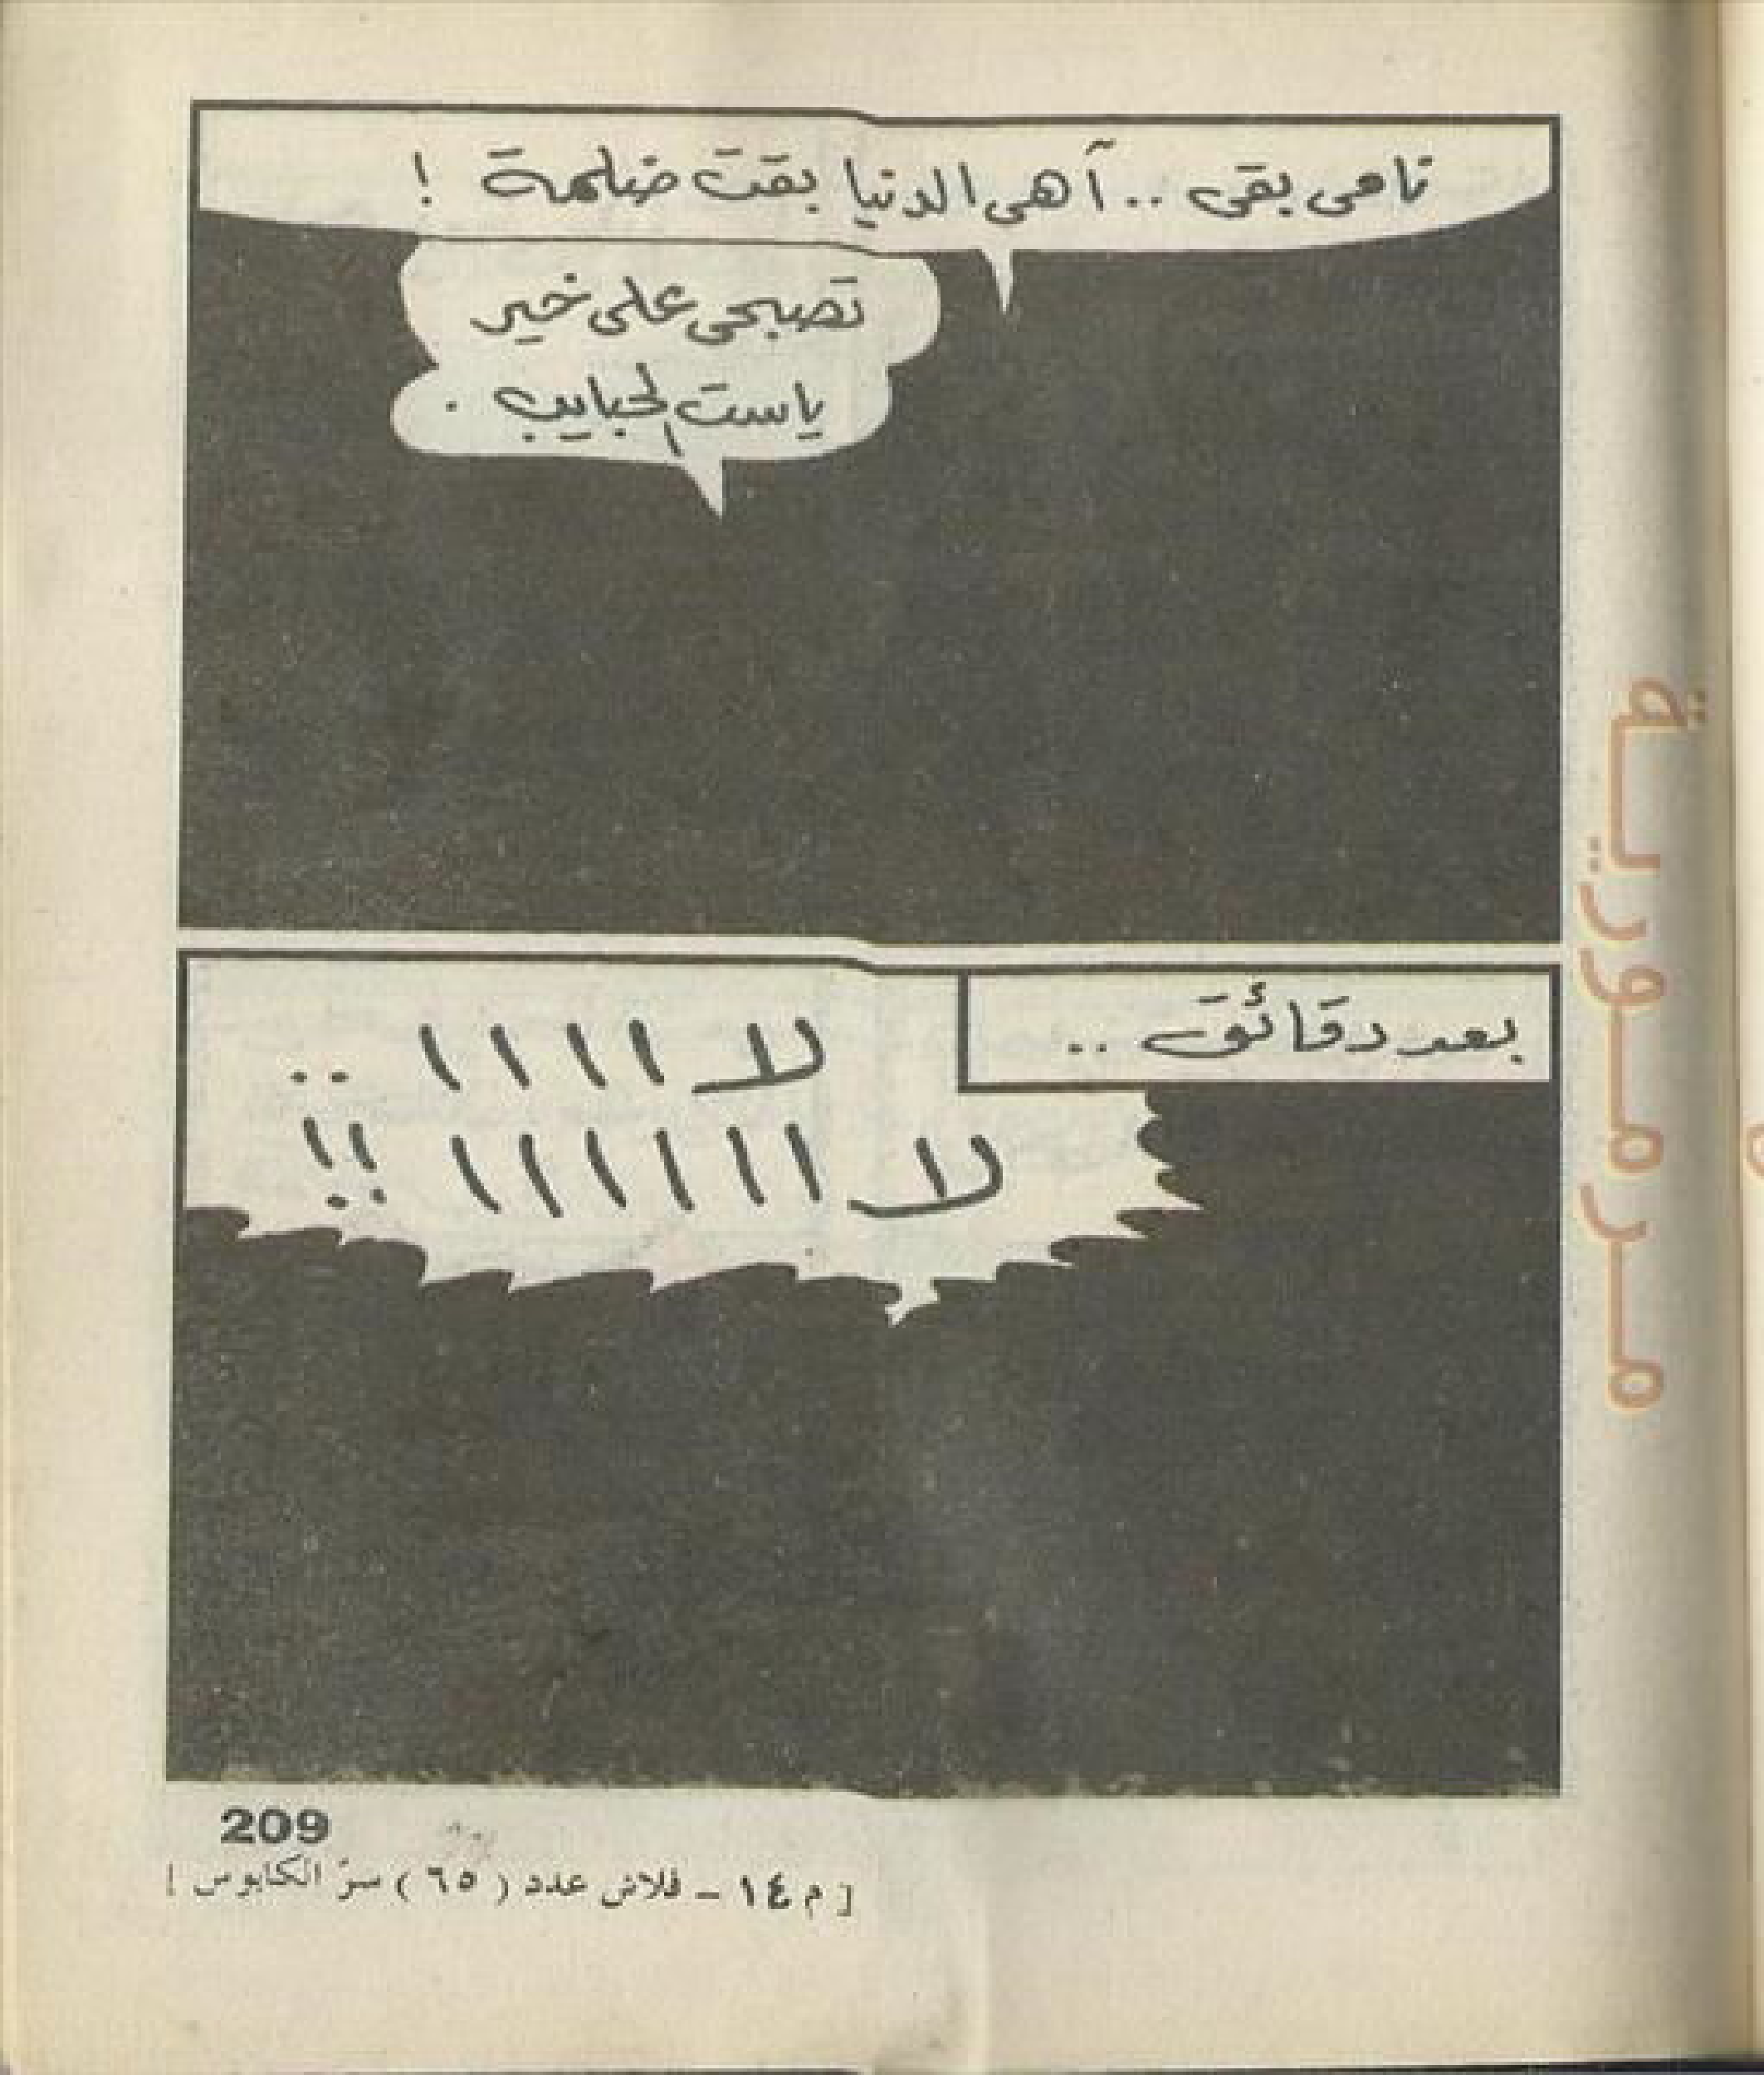 نامى بقى .. آهى الدنيا بقت ضلمة !
تصبحى على خير
ياست الحبايب .
بعد دقائق ..
لا اااا ..
لا اااااا !!
209
[ م ١٤ - فلاش عدد ( ٦٥ ) سرّ الكابوس ]
مـرمـوريـة